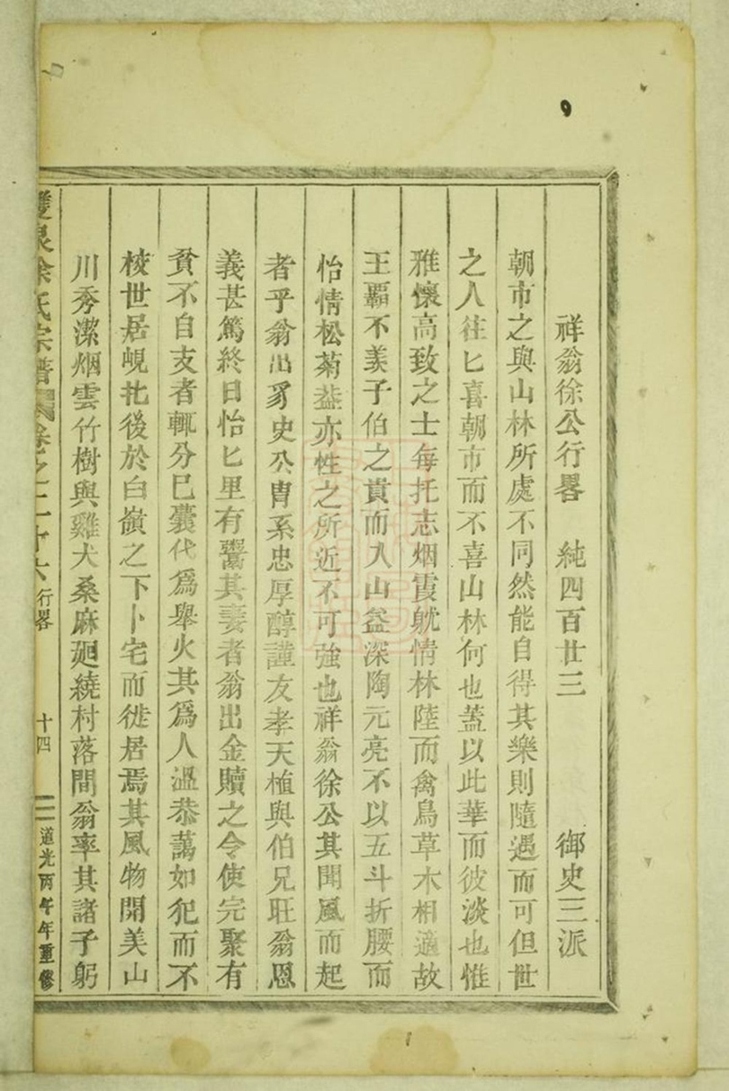 9
祥翁徐公行畧 純四百廿三 御史三派
朝市之與山林所處不同然能自得其樂則隨遇而可但世
之人往匕喜朝市而不喜山林何也蓋以此華而彼淡也惟
雅懷高致之士每托志烟霞躭情林陸而禽鳥草木相適故
王霸不羨子伯之貴而入山益深陶元亮不以五斗折腰而
怡情松菊益亦性之所近不可強也祥翁徐公其聞風而起
者乎翁出豸史公冑系忠厚醇謹友孝天植與伯兄旺翁恩
義甚篤終日怡匕里有鬻其妻者翁出金贖之令使完聚有
貧不自支者輒分巳囊代爲舉火其爲人溫恭藹如犯而不
棱世居峴北後於白嶺之下卜宅而徙居焉其風物開美山
川秀潔烟雲竹樹與雞犬桑麻廻繞村落間翁率其諸子躬
雙泉徐氏宗譜 卷之二十六 行畧 十四 道光丙午年重修